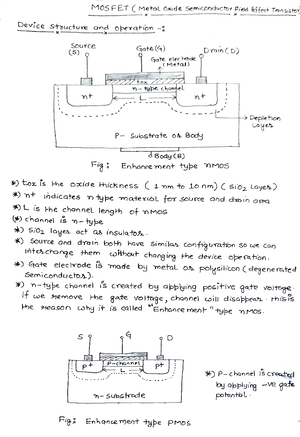 MOSFET ( Metal Oxide Semiconductor Field Effect Transistor)
Device Structure and Operation -:
Source
(S)
Gate(G)
Drain(D)
Gate electrode
(Metal)
tox
n-type channel
n+
L
n+
P- Substrate or Body
Depletion
Layers
Body(B)
Fig: Enhancement type nMOS
*) tox is the oxide thickness ( 1 nm to 10 nm) ( SiO2 Layer)
*) n+ indicates n type material for source and drain area
*) L is the channel length of nMOS
(*) channel is n-type
*) SiO2 layer act as insulator.
*) Source and drain both have similar configuration so we can
interchange them without changing the device operation.
*) Gate electrode is made by metal or polysilicon (degenerated
Semiconductor).
*) n-type channel is created by applying positive gate voltage.
if we remove the gate voltage, channel will disappear. this is
the reason why it is called "Enhancement" type nMOS.
S
G
D
P-channel
p+
L
p+
n-substrate
*) P-channel is created
by applying -ve gate
potential.
Fig: Enhancement type PMOS